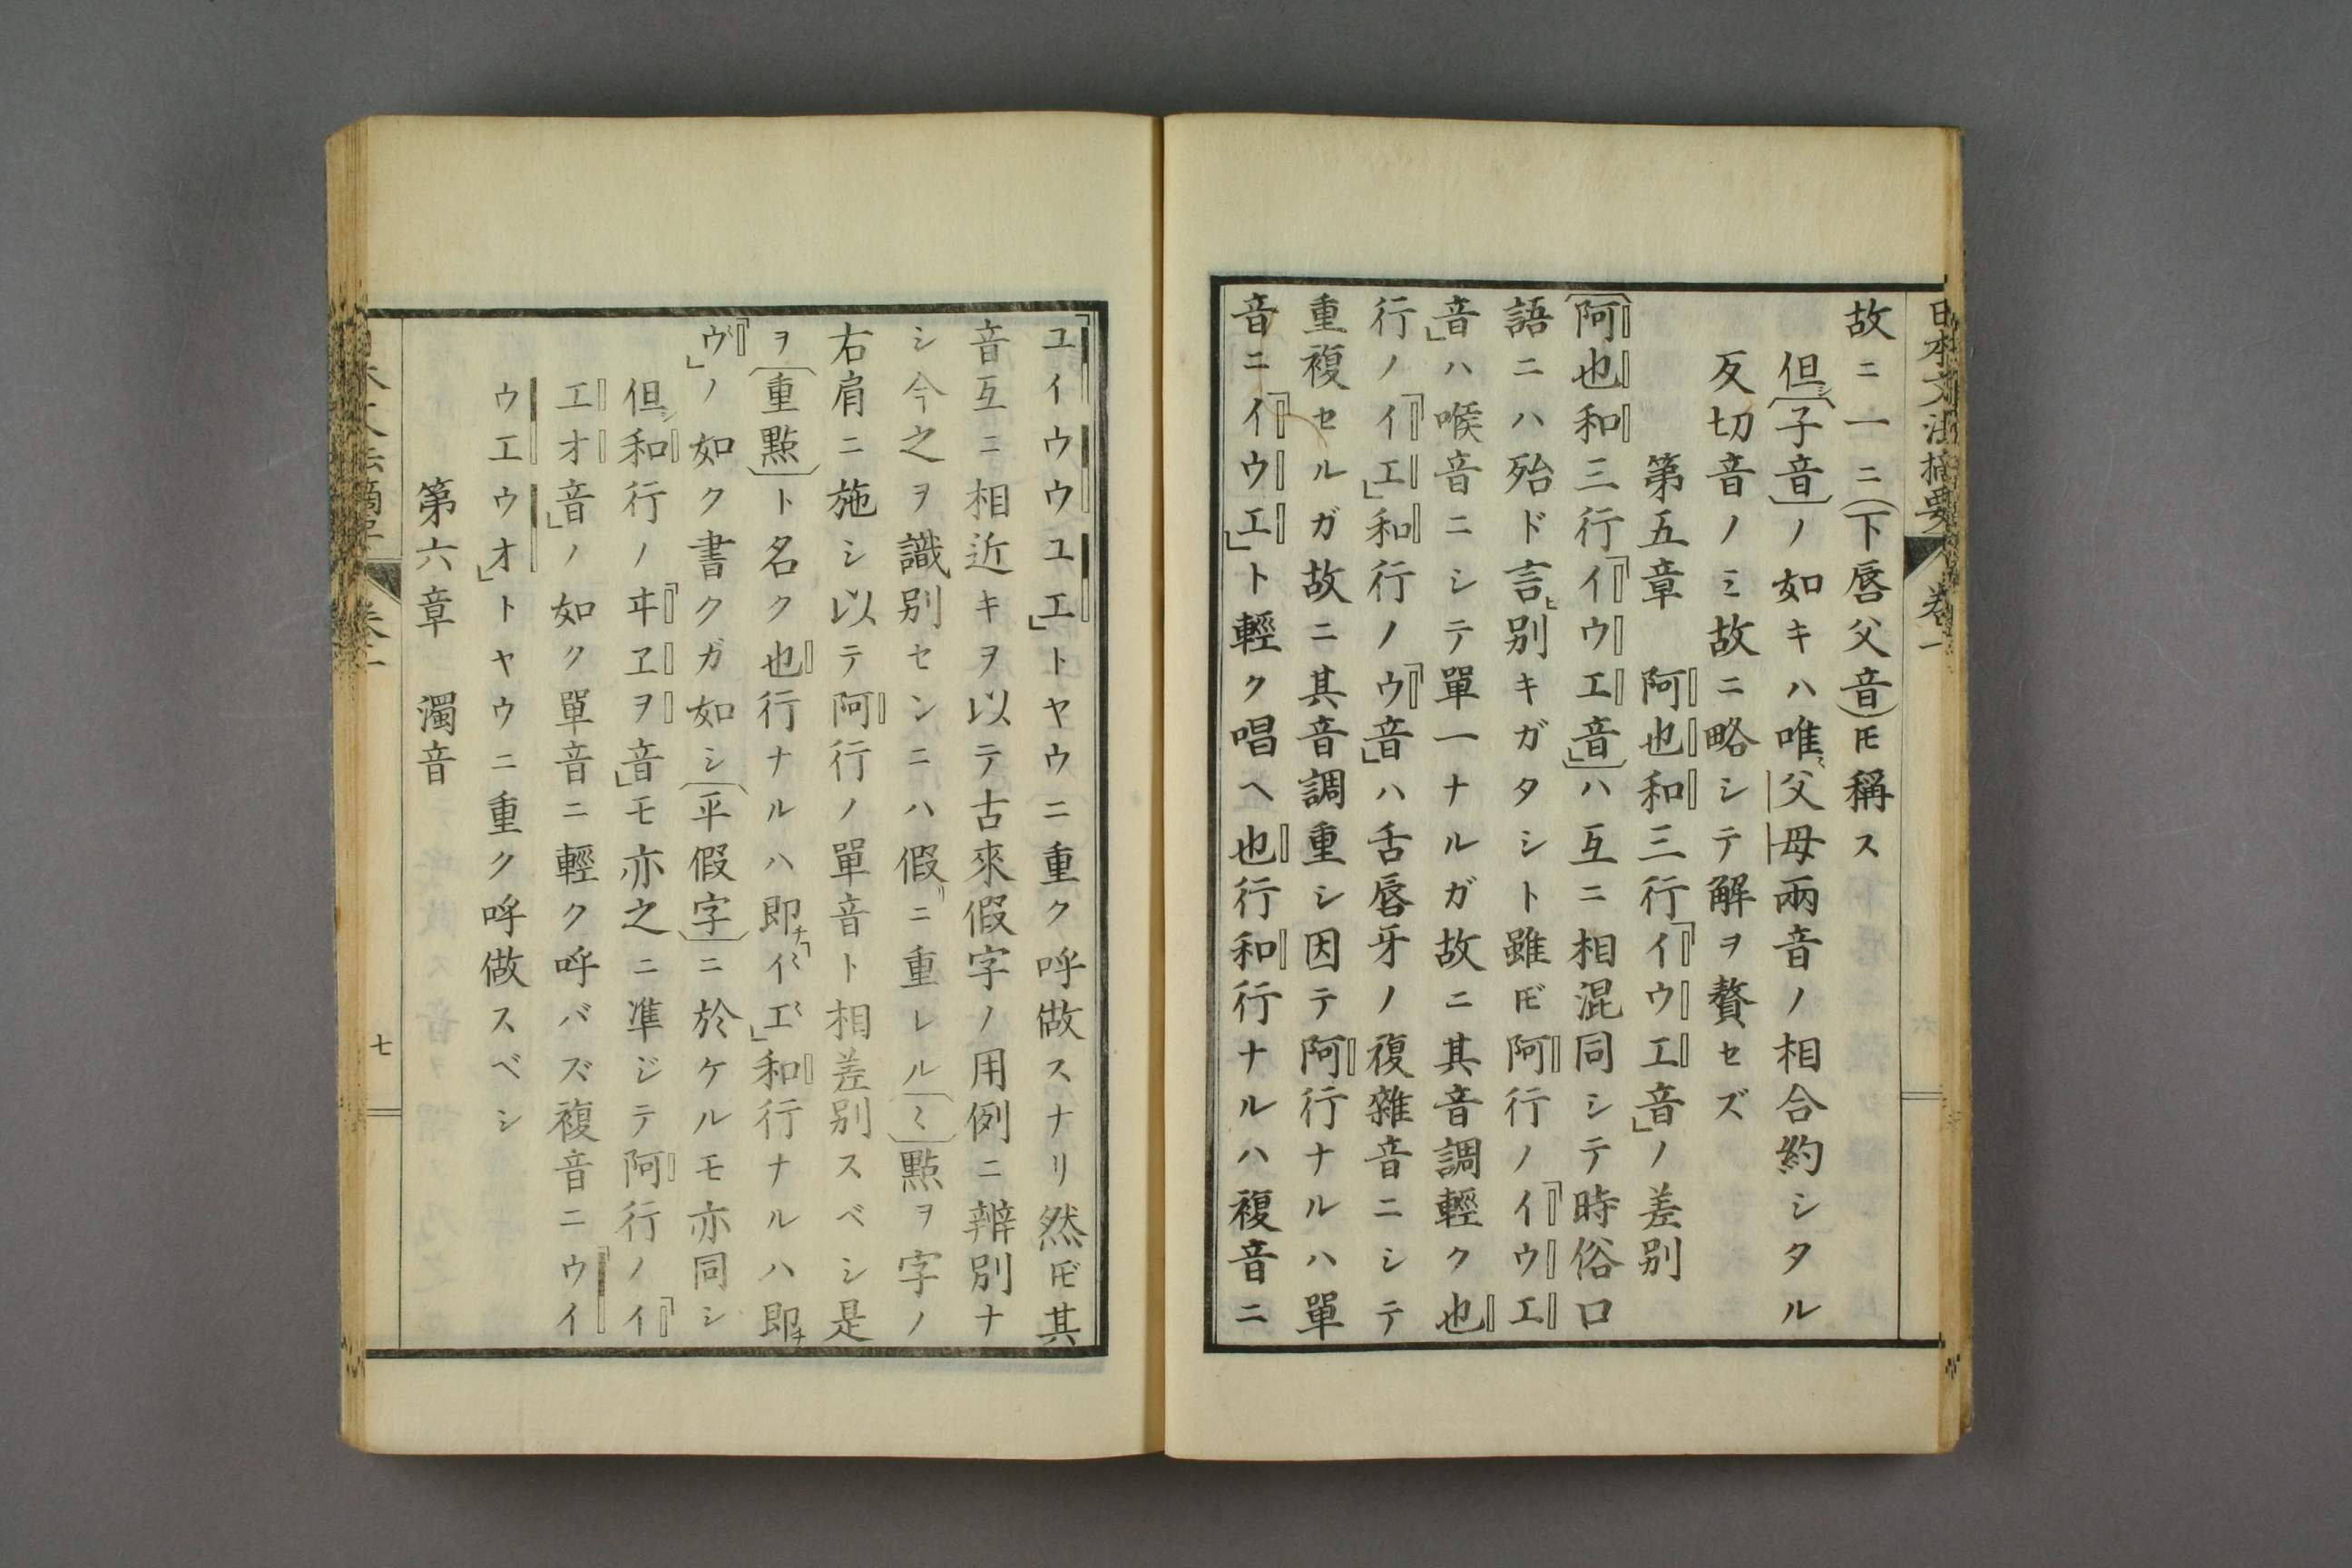 日本文法摘要 卷一
故ニ一ニ(下唇父音)𪜈稱ス
但シ(子音)ノ如キハ唯〻父母兩音ノ相合約シタル
反切音ノミ故ニ略シテ解ヲ贅セズ
第五章 阿也和三行「イウエ音」ノ差別
(阿也和三行「イウエ音」)ハ互ニ相混同シテ時俗口
語ニハ殆ド言ヒ別キガタシト雖𪜈゙阿行ノ「イウエ
音」ハ喉音ニシテ單一ナルガ故ニ其音調輕ク也
行ノ「イエ」和行ノ「ウ音」ハ舌唇牙ノ複雜音ニシテ
重複セルガ故ニ其音調重シ因テ阿行ナルハ單
音ニ「イウエ」ト輕ク唱ヘ也行和行ナルハ複音ニ
「ユイウウユエ」トヤウニ重ク呼做スナリ然𪜈゙其
音互ニ相近キヲ以テ古來假字ノ用例ニ辨別ナ
シ今之ヲ識別センニハ假リニ重レル(ミ)點ヲ字ノ
右肩ニ施シ以テ阿行ノ單音ト相差別スベシ是
ヲ(重點)ト名ク也行ナルハ即チ「イ〻エ〻」和行ナルハ即チ
「ウ〻」ノ如ク書クガ如シ(平假字)ニ於ケルモ亦同シ
但シ和行ノ「ヰヱヲ音」モ亦之ニ準ジテ阿行ノ「イ
エオ音」ノ如ク單音ニ輕ク呼バズ複音ニ「ウイ
ウエウオ」トヤウニ重ク呼做スベシ
第六章 濁音
卷一
七